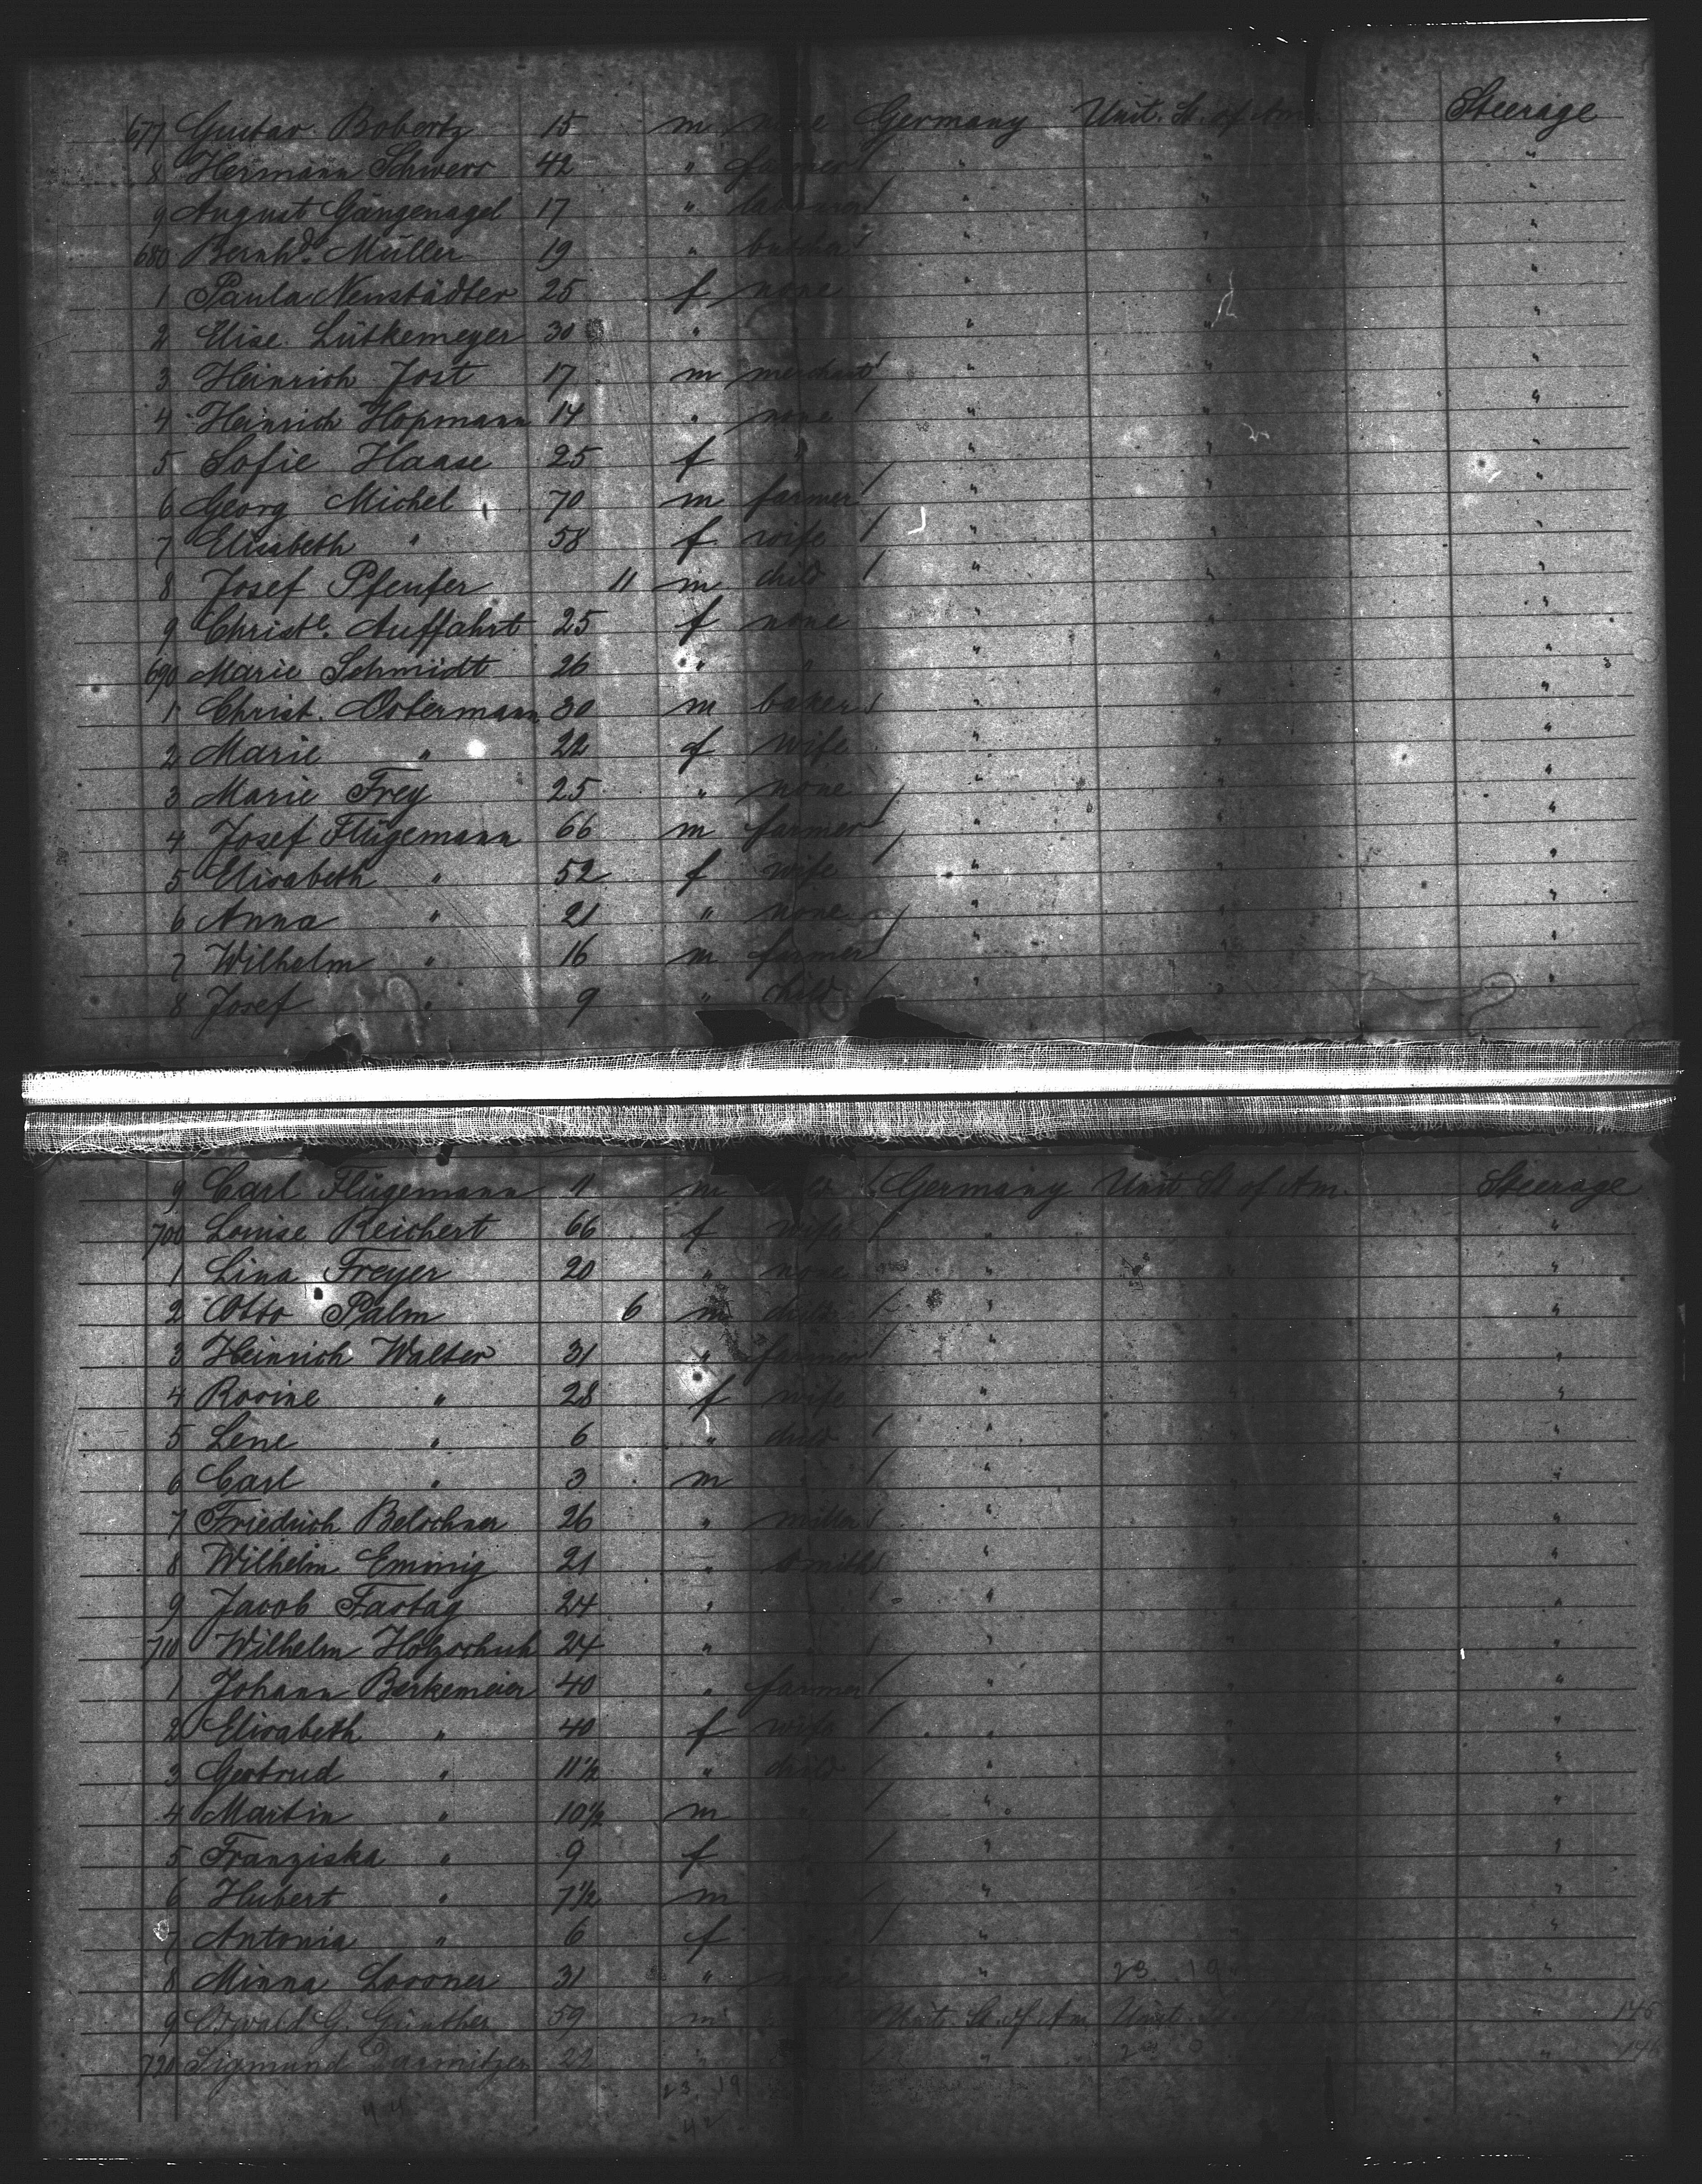 677 Gustav Bobertz 15 m none Germany Unit. St. of Am. Steerage
8 Hermann Schwerr 42 " farmer / " " "
9 August Gängenagel 17 " / " " "
680 Bernhd. Müller 19 " butcher / " " "
1 Paula Neustädter 25 f none " " "
2 Elise Lütkemeyer 30 " " " "
3 Heinrich Jost 17 m merchant / " " "
4 Heinrich Hopmann 14 " none / " " "
5 Sofie Haase 25 f " " " "
6 Georg Michel 70 m farmer / " " "
7 Elisabeth " 58 f wife / " " "
8 Josef Pfeufer 11 m child / " " "
9 Christe. Auffahrt 25 f none " " "
690 Marie Schmidt 26 " " " " "
1 Christ. Ostermann 30 m baker / " " "
2 Marie " 22 f wife " " "
3 Marie Frey 25 " none / " " "
4 Josef Flügemann 66 m farmer / " " "
5 Elisabeth " 52 f wife / " " "
6 Anna " 21 " none / " " "
7 Wilhelm " 16 m farmer / " " "
8 Josef " 9 " child / " " "
9 Carl Flügemann 11 m child / Germany Unit St of Am. Steerage
700 Louise Reichert 66 f wife / " " "
1 Lina Freyer 20 " none " " "
2 Otto Palm 6 m child / " " "
3 Heinrich Walter 31 " farmer / " " "
4 Rosine " 28 f wife " " "
5 Lene " 6 " child / " " "
6 Carl " 3 m " / " " "
7 Friedrich Belschner 26 " miller / " " "
8 Wilhelm Emmig 21 " smith / " " "
9 Jacob Fastag 24 " / " " "
710 Wilhelm Holzschuh 24 " " / " " "
1 Johann Berkemeier 40 " farmer / " " "
2 Elisabeth " 40 f wife / " " "
3 Gertrud " 11½ " child / " " "
4 Martin " 10½ m " / " " "
5 Franziska " 9 f / " " "
6 Hubert " 7½ m / " " "
7 Antonia " 6 f / " " "
8 Minna Lossner 31 " none " 23 19 "
9 Oswald G. Günther 59 m Unit. St. of Am Unit. " 146
720 Sigmund Darmitzer 22 " / " "
23. 19
44
42